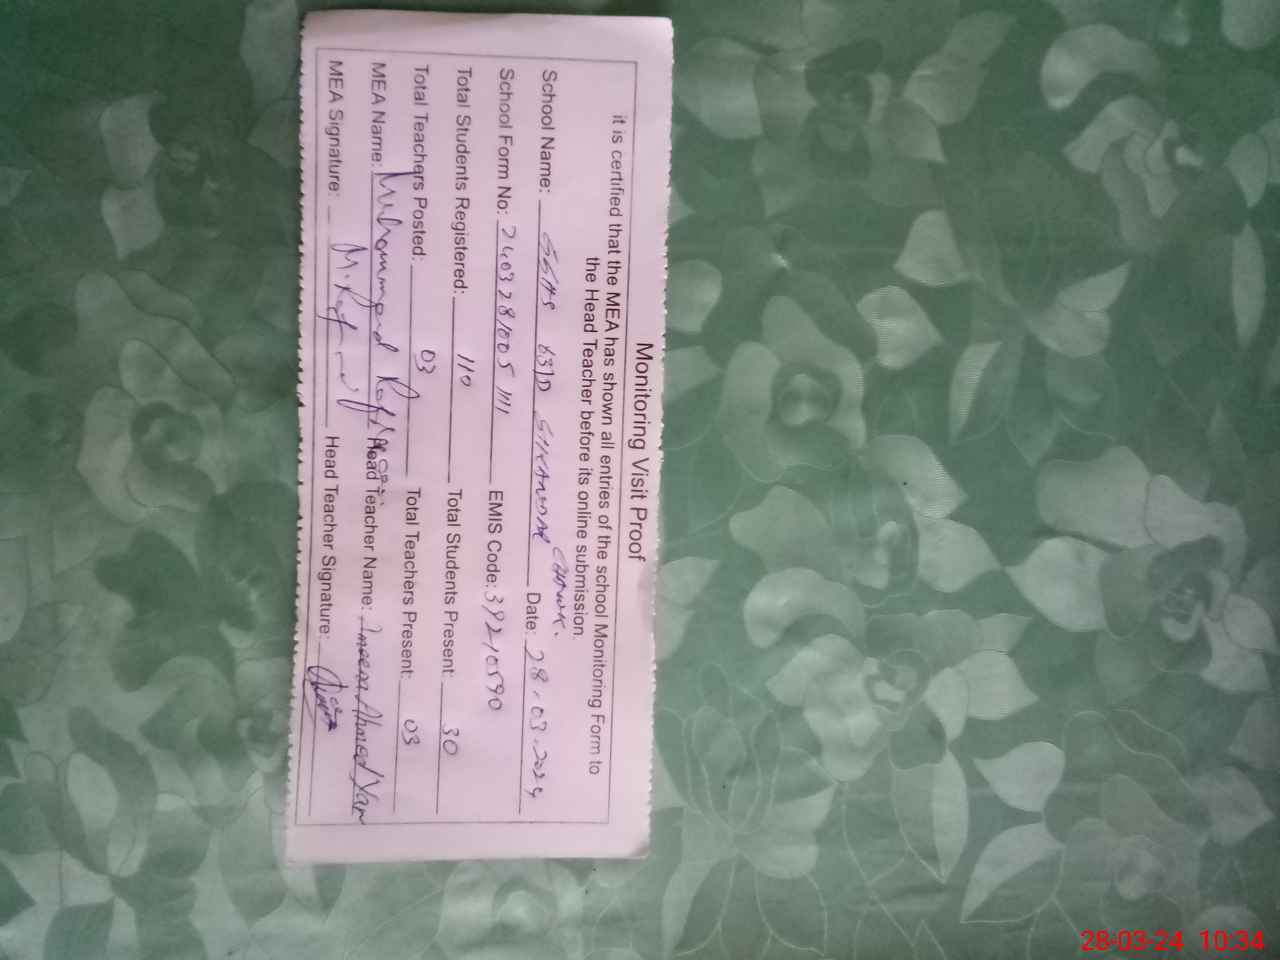 Monitoring Visit Proof
it is certified that the MEA has shown all entries of the school Monitoring Form to
the Head Teacher before its online submission.
School Name: 63/D Chowk. Date: 28.03.2024
School Form No: EMIS Code: 39210590
Total Students Registered: 110 Total Students Present: 30
Total Teachers Posted: 03 Total Teachers Present: 03
MEA Name: Muhammad Head Teacher Name: Ahmed
MEA Signature: Head Teacher Signature:
28-03-24 10:34